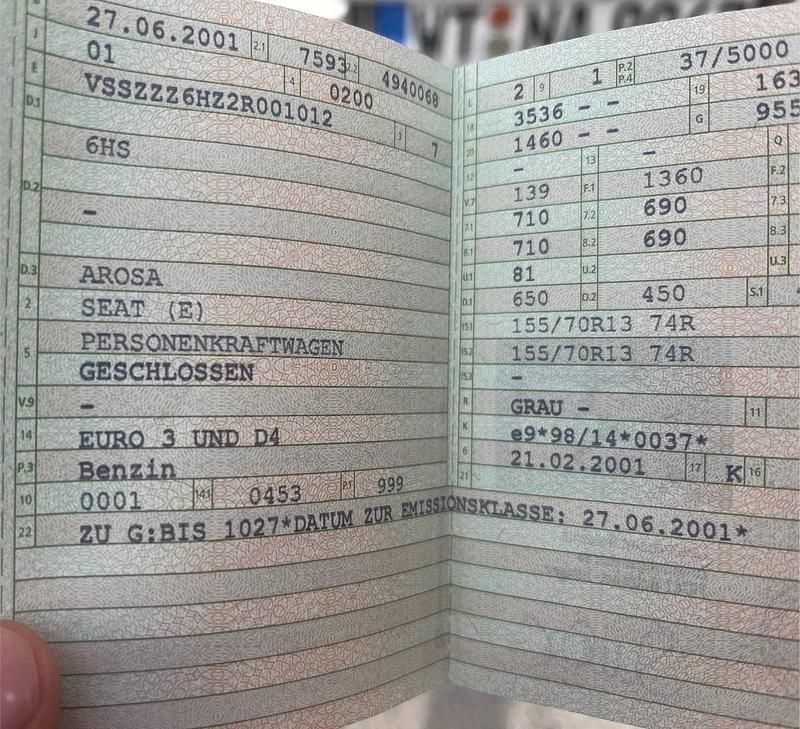 27.06.2001 2.1 7593 2.2 4940068
J 01 4 0200
E VSSZZZ6HZ2R001012 3 7
D.1 6HS
D.2 -
D.3 AROSA
2 SEAT (E)
5 PERSONENKRAFTWAGEN
GESCHLOSSEN
V.9 -
14 EURO 3 UND D4
P.3 Benzin
10 0001 14.1 0453 P.1 999
22 ZU G:BIS 1027*DATUM ZUR EMISSIONSKLASSE: 27.06.2001*
L 2 9 1 P.2 P.4 37/5000
18 3536 - - 19 163
20 1460 - - G 955
12 - 13 - Q
V.7 139 F.1 1360 F.2
7.1 710 7.2 690 7.3
8.1 710 8.2 690 8.3
U.1 81 U.2 U.3
O.1 650 O.2 450 S.1
15.1 155/70R13 74R
15.2 155/70R13 74R
15.3 -
R GRAU - 11
K e9*98/14*0037*
6 21.02.2001 17 K 16
21